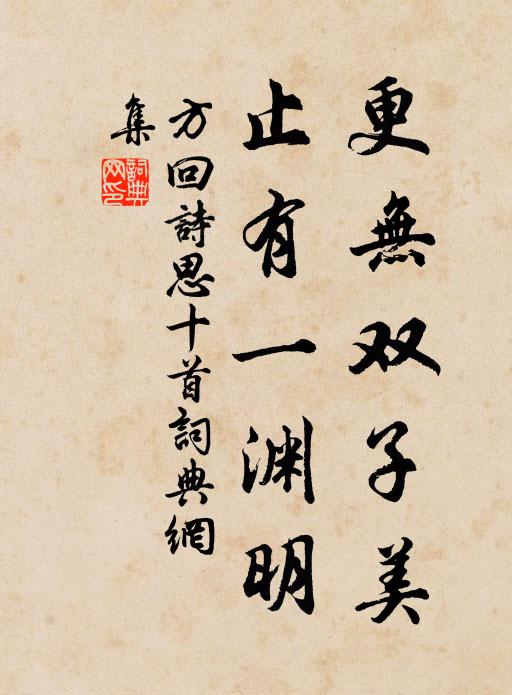 更無双子美
止有一渊明
方回詩思十首詞典網
集
詞典
网印